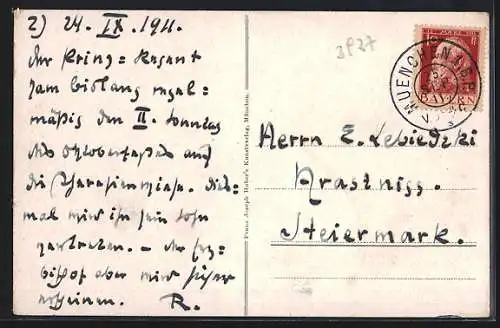 2) 24. IX. 1911.
Der Prinz-Regent
kam bislang regel-
mäßig den II. Sonntag
des Oktoberfestes auf
die Theresienwiese. Dies-
mal wird ihn sein Sohn
vertreten. – Der Erz-
bischof aber wird sicher
erscheinen. R.
Franz Joseph Huber's Kunstverlag, München.
3P27
MUENCHEN
BAYERN
Herrn E. Lebiedzki
Hrastnigg.
Steiermark.